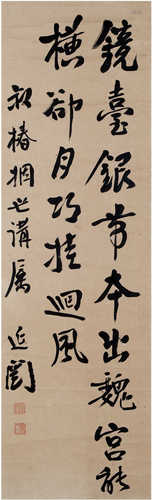 鏡臺銀帶本出魏宮能
橫卻月巧挂迴風
叔椿捆世講屬 延闓